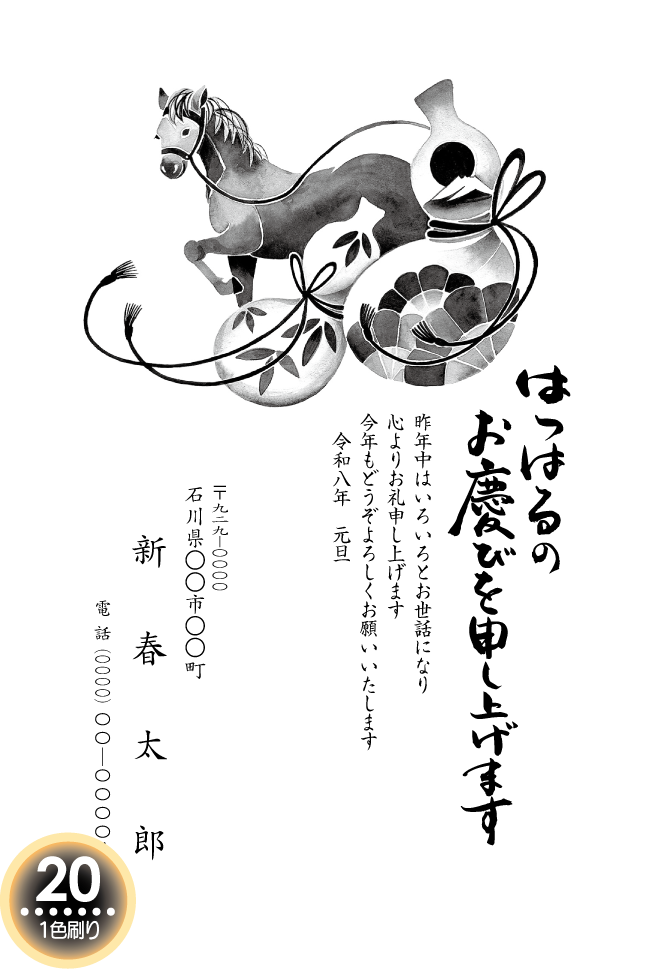 はつはるの
お慶びを申し上げます
昨年中はいろいろとお世話になり
心よりお礼申し上げます
今年もどうぞよろしくお願いいたします
令和八年　元旦
〒九二九―〇〇〇〇
石川県〇〇市〇〇町
新春太郎
電話（〇〇〇〇）〇〇―〇〇〇〇
20
1色刷り